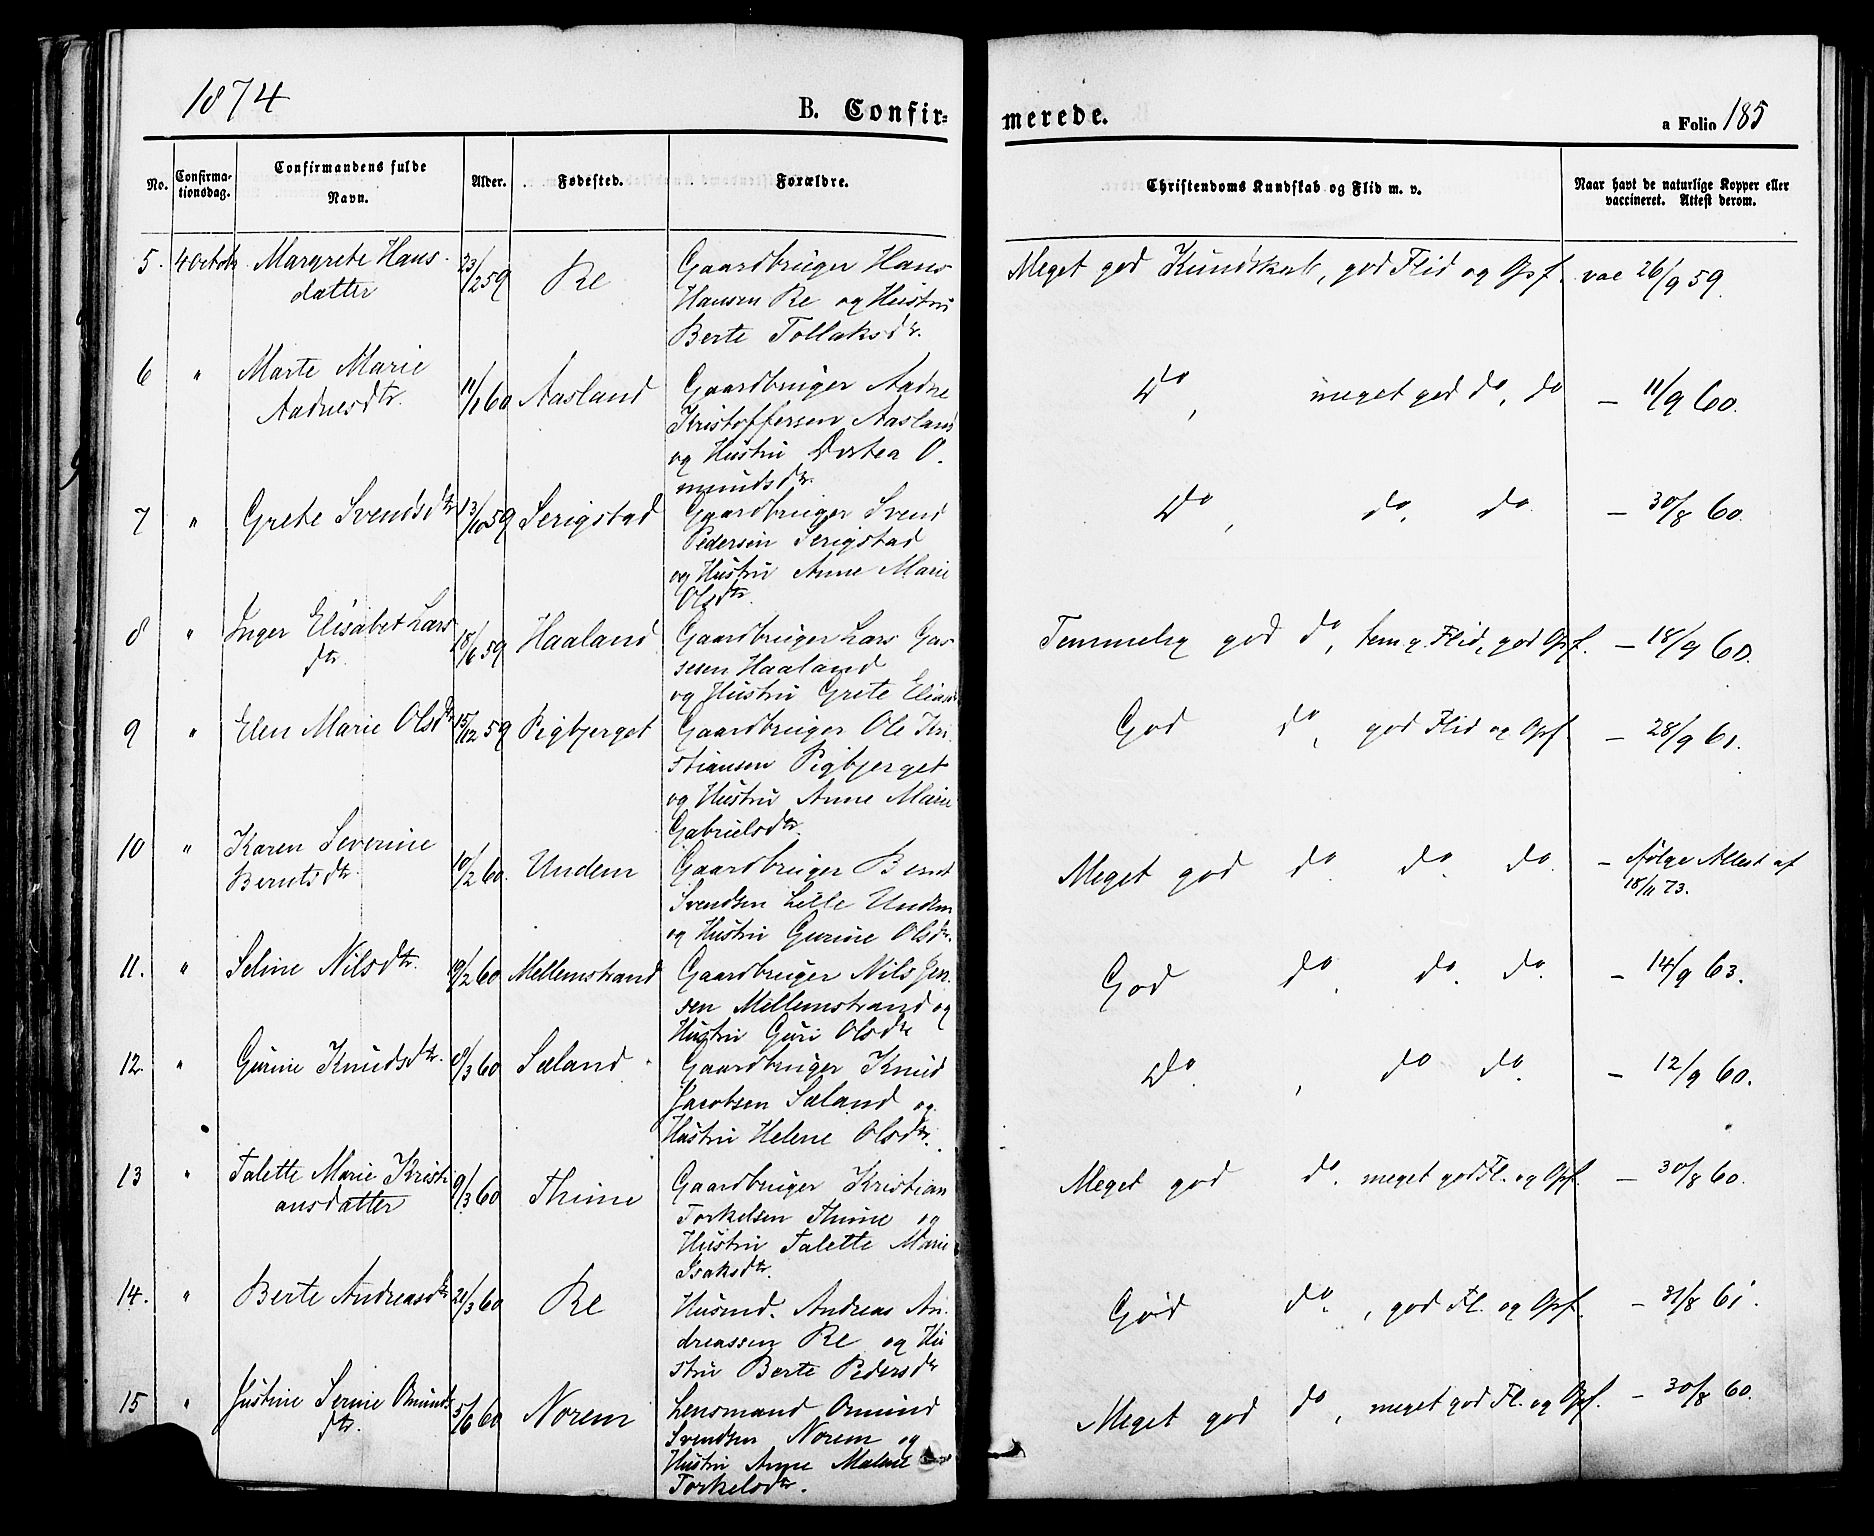 1874
B. Confir=
merede.
a Folio 185
No.
Confirma-
tionsdag.
Confirmandens fulde
Navn.
Alder.
Fødested.
Forældre.
Christendoms Kundskab og Flid m. v.
Naar havt de naturlige Kopper eller
vaccineret. Attest derom.
5. 4 Octob Margrete Hans- 23/2 59 Re Gaardbruger Hans Meget god Kundskab, god Flid og Opf. vac 26/9 59.
datter Hansen Re og Hustru
Berte Tollaksdr.
6 " Marte Marie 11/1 60 Aasland Gaardbruger Aadne Do, meget god do, do — 11/9 60.
Aadnesdtr. Kristoffersen Aasland
og Hustru Dortea O-
mundsdtr.
7 " Grete Svendsdtr 13/10 59 Serigstad Gaardbruger Svend Do, do, do — 30/8 60.
Pedersen Serigstad
og Hustru Anne Marie
Olsdtr.
8 " Inger Elisabet Lars 18/6 59 Haaland Gaardbruger Lars Temmelig god do, temg. Flid, god Opf. — 18/9 60.
dtr. sesen Haaland
og Hustru Grete
9 " Elen Marie Olsdtr 15/12 59 Rigbjerget Gaardbruger Ole Kri- God do, god Flid og Opf — 28/9 61.
stiansen Rigbjerget
og Hustru Anne Marie
Gabrielsdtr.
10 " Karen Severine 10/2 60. Undem Gaardbruger Bernt Meget god do do. do. — følge Attest af
Berntsdtr. Svendsen Lille Undem 18/11 73.
og Hustru Gurine Olsdr.
11. " Seline Nilsdtr. 19/2 60 Mellemstrand Gaardbruger Nils Jen- God do, do. do. — 14/9 63.
sen Mellemstrand og
Hustru Guri Olsdtr
12. " Gurine Knudsdtr. 8/3 60 Sæland Gaardbruger Knud Do. , do do. — 12/9 60.
Jacobsen Sæland og
Hustru Helene Olsdtr.
13 " Talette Marie Kristi 9/3 60 Thime Gaardbruger Kristian Meget god do. meget god Fl. og Opf. — 30/8 60.
ansdatter Torkelsen Thime og
Hustru Talette Marie
Isaksdtr.
14. " Berte Andreasdtr 21/3 60 Re Husmd. Andreas An- God do, god Fl. og Opf. — 31/8 61.
dreassen Re og Hu
stru Berte Pedersdtr
15 " Justine Serine Omunds 5/6 60 Norem Lensmand Omund Meget god do, meget god Fl. og Opf. — 30/8 60.
dtr. Svendsen Norem og
Hustru Anne Malene
Torkelsdtr.